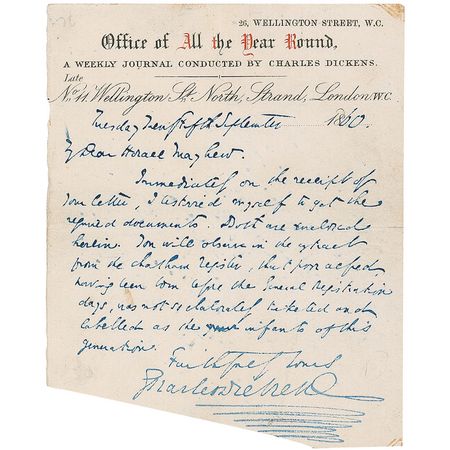 26, WELLINGTON STREET, W.C.
Office of All the Year Round,
A WEEKLY JOURNAL CONDUCTED BY CHARLES DICKENS.
Late
No. 11, Wellington St. North, Strand, London W.C.
Tuesday Twenty Fifth September 1860.
My Dear Horace Mayhew.
Immediately on the receipt of
Your letter, I bestirred myself to get the
required documents. Both are enclosed
herein. You will observe in the extract
from the Chatham Register, that poor Alfred
having been born before the General Registration
days, was not so elaborately ticketed and
labelled as the infants of this
generation.
Faithfully Yours
Charles Dickens